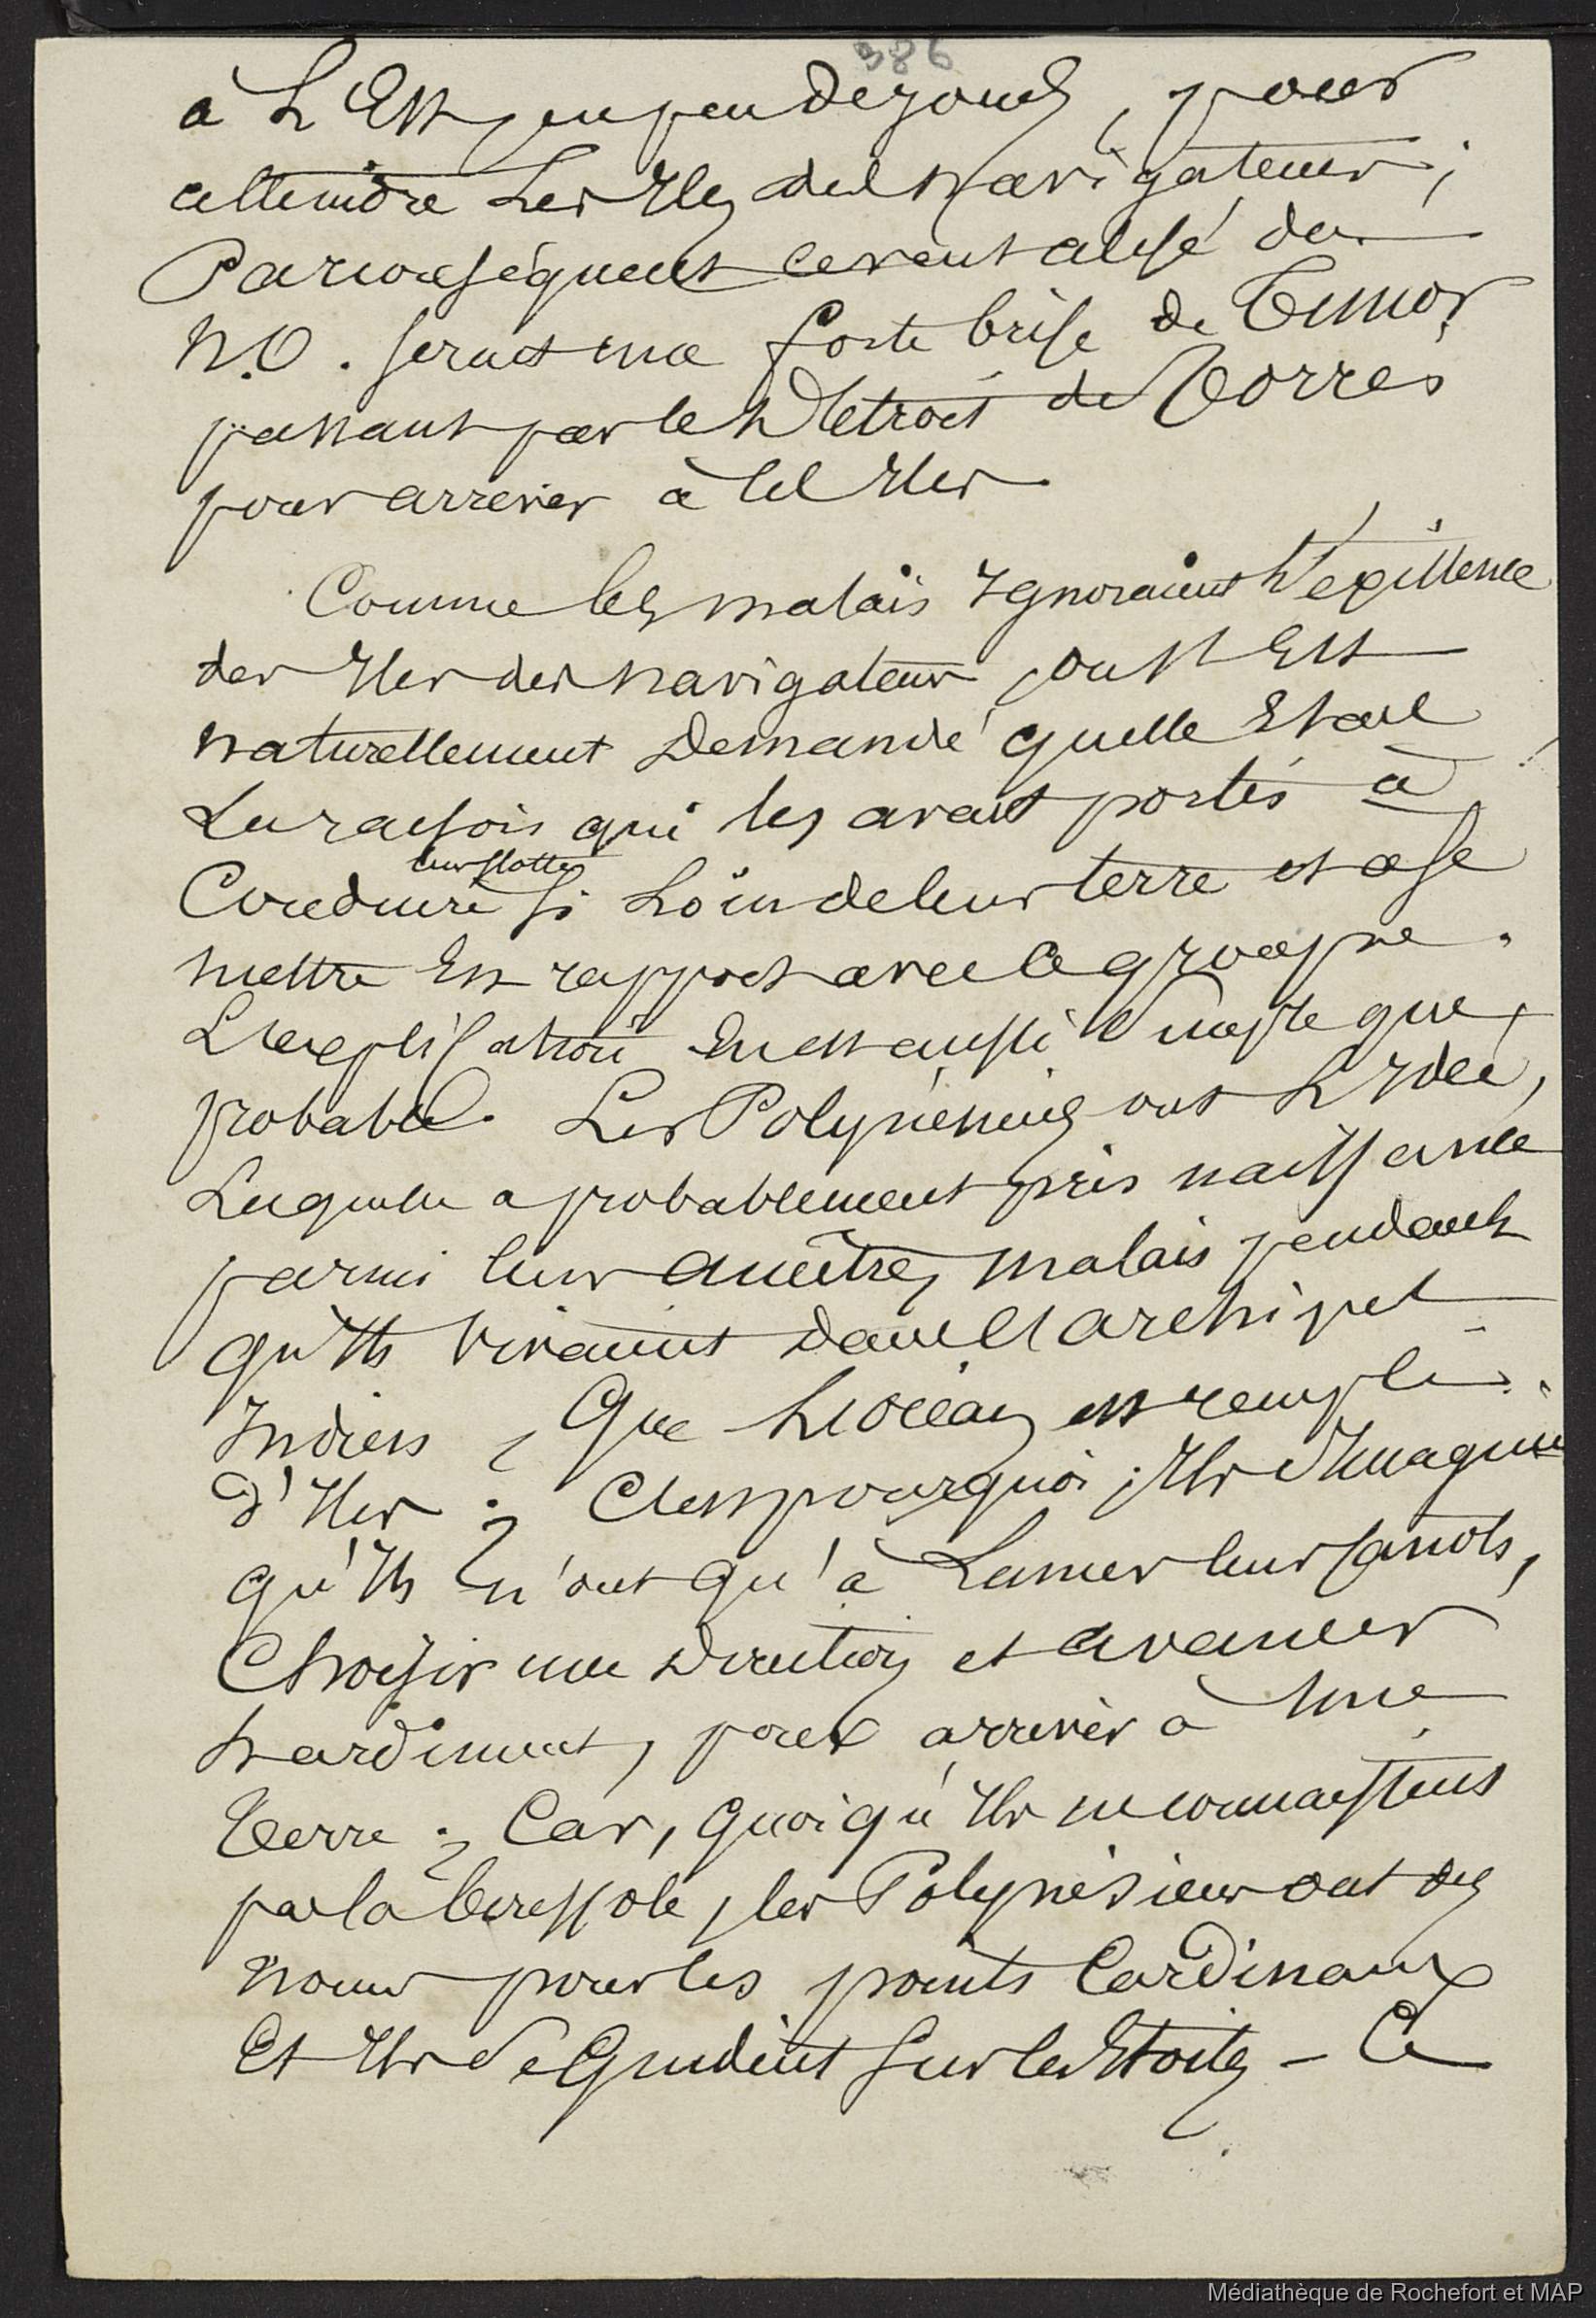 386
à L'Est, en peu de jours, pour
atteindre Les Iles des navigateurs;
Par conséquent ce vent alisé du
N.O. serait une forte brise de Timor,
passant par le Détroit de Torres
pour arriver à ces Iles.
Comme les malais Ignoraient L'existence
des Iles des navigateurs, on s'Est
naturellement Demandé quelle Etait
La raison qui les avait portés à
leur flotte
Conduire si Loin de leur terre et à se
mettre En rapport avec ce groupe.
L'explication En est aussi Simple que
probable. Les Polynésiens ont L'Idée,
Laquelle a probablement pris naissance
parmi leurs ancêtres, malais pendant
qu'Ils vivaient dans L'archipel
Indien, Que L'océan est rempli
d'Iles; C'est pourquoi, Ils S'Imaginent
qu'Ils n'ont qu'à Lancer leurs Canots,
Choisir une Direction et avancer
hardiment, pour arriver à Une
Terre; Car, quoiqu'Ils ne connaissent
pas la boussole, les Polynésiens ont des
noms pour les points Cardinaux
Et Ils Se Guident Sur les Etoiles – Ce
Médiathèque de Rochefort et MAP